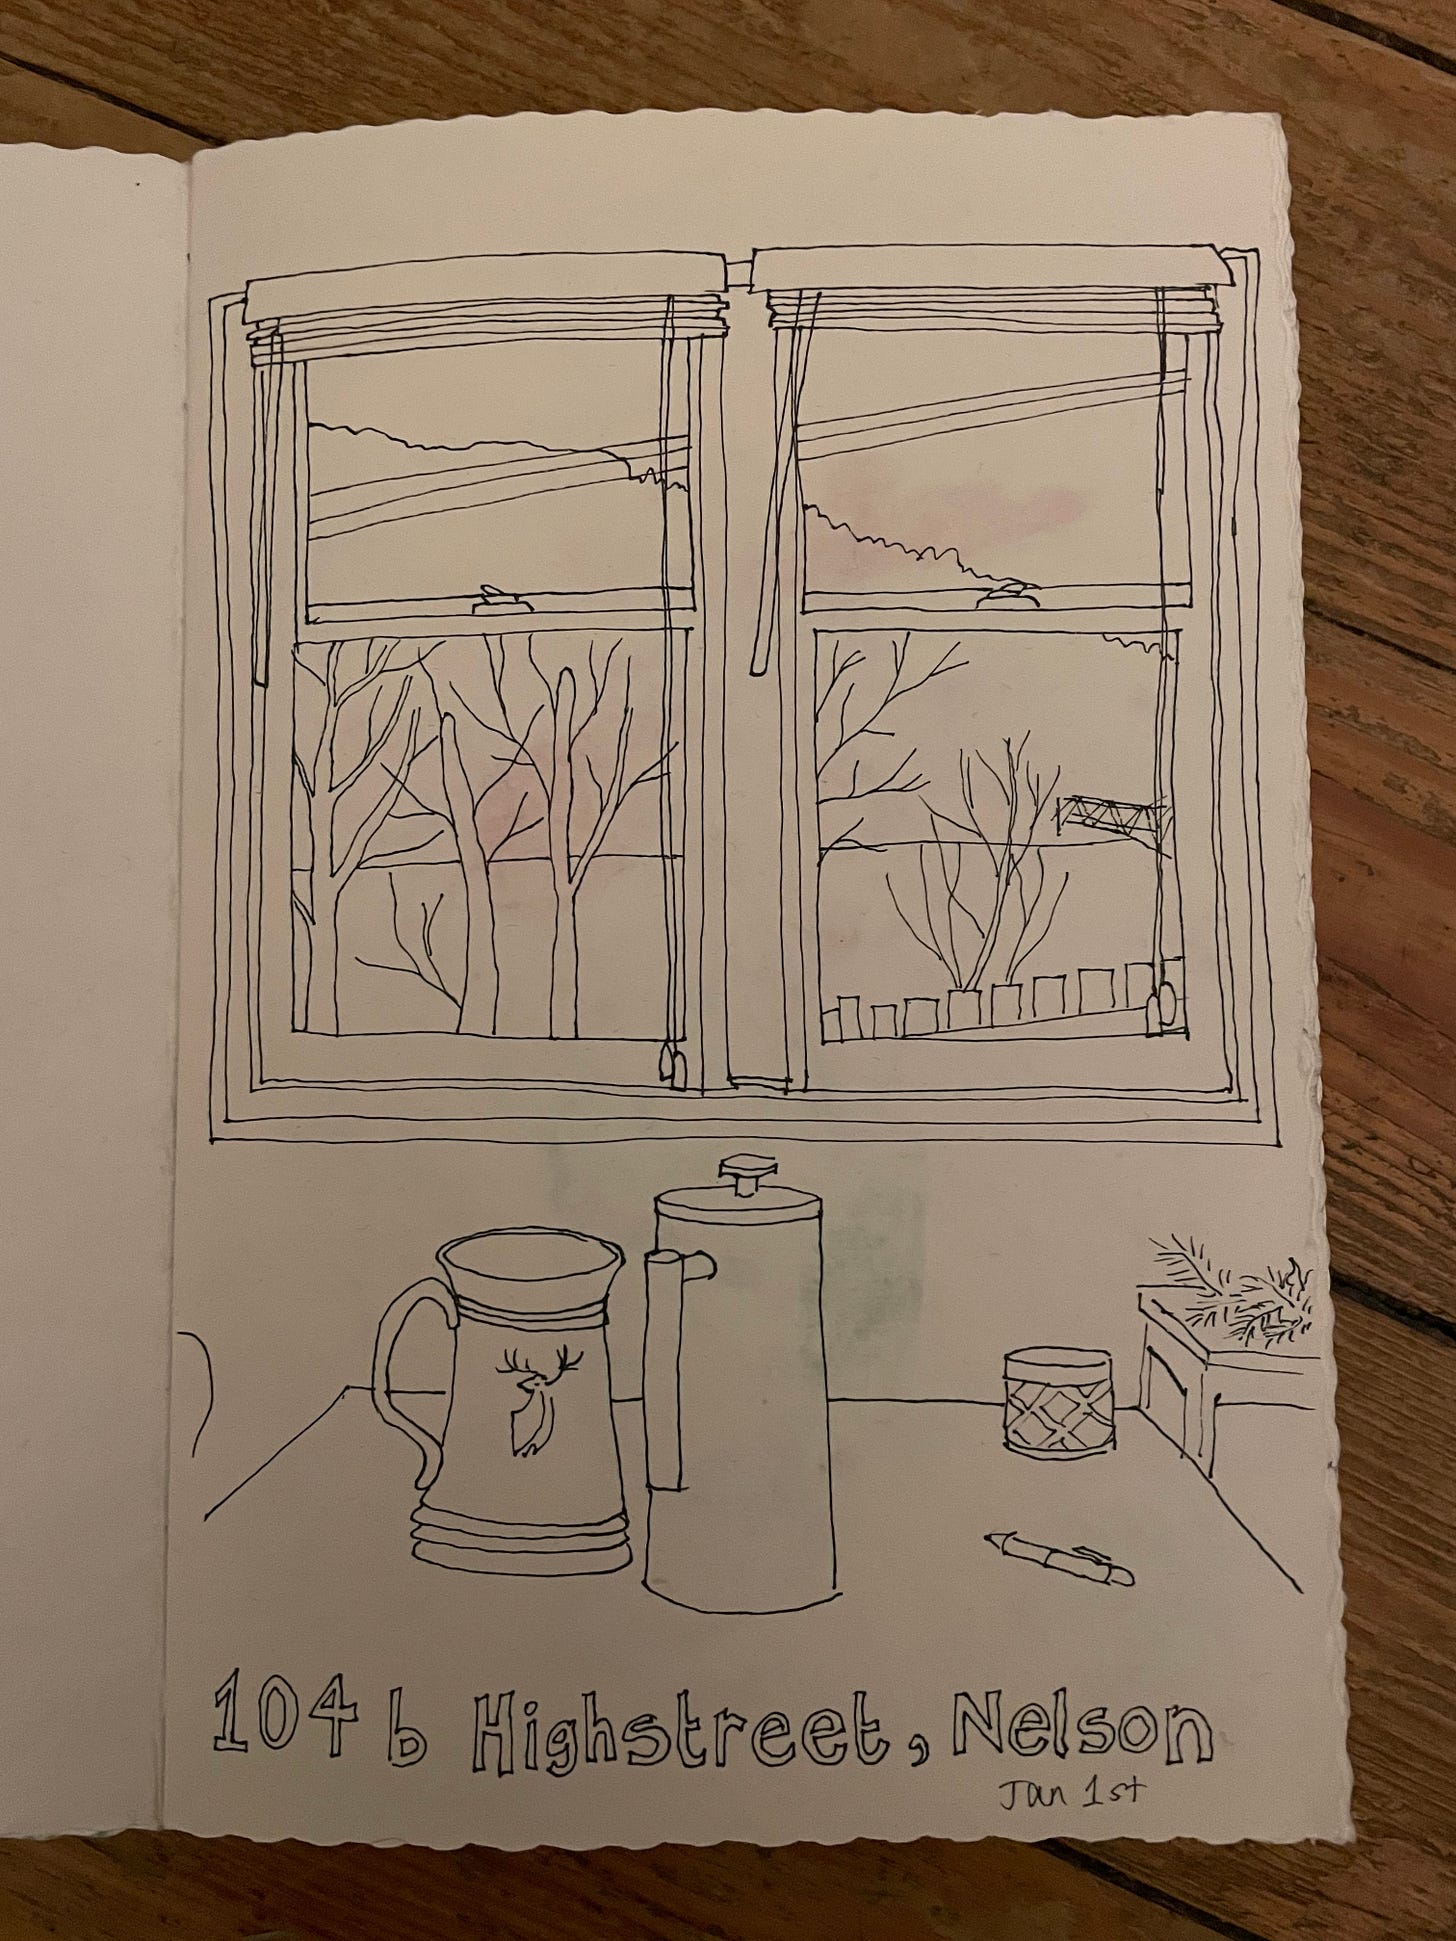 104 b Highstreet, Nelson
Jan 1st